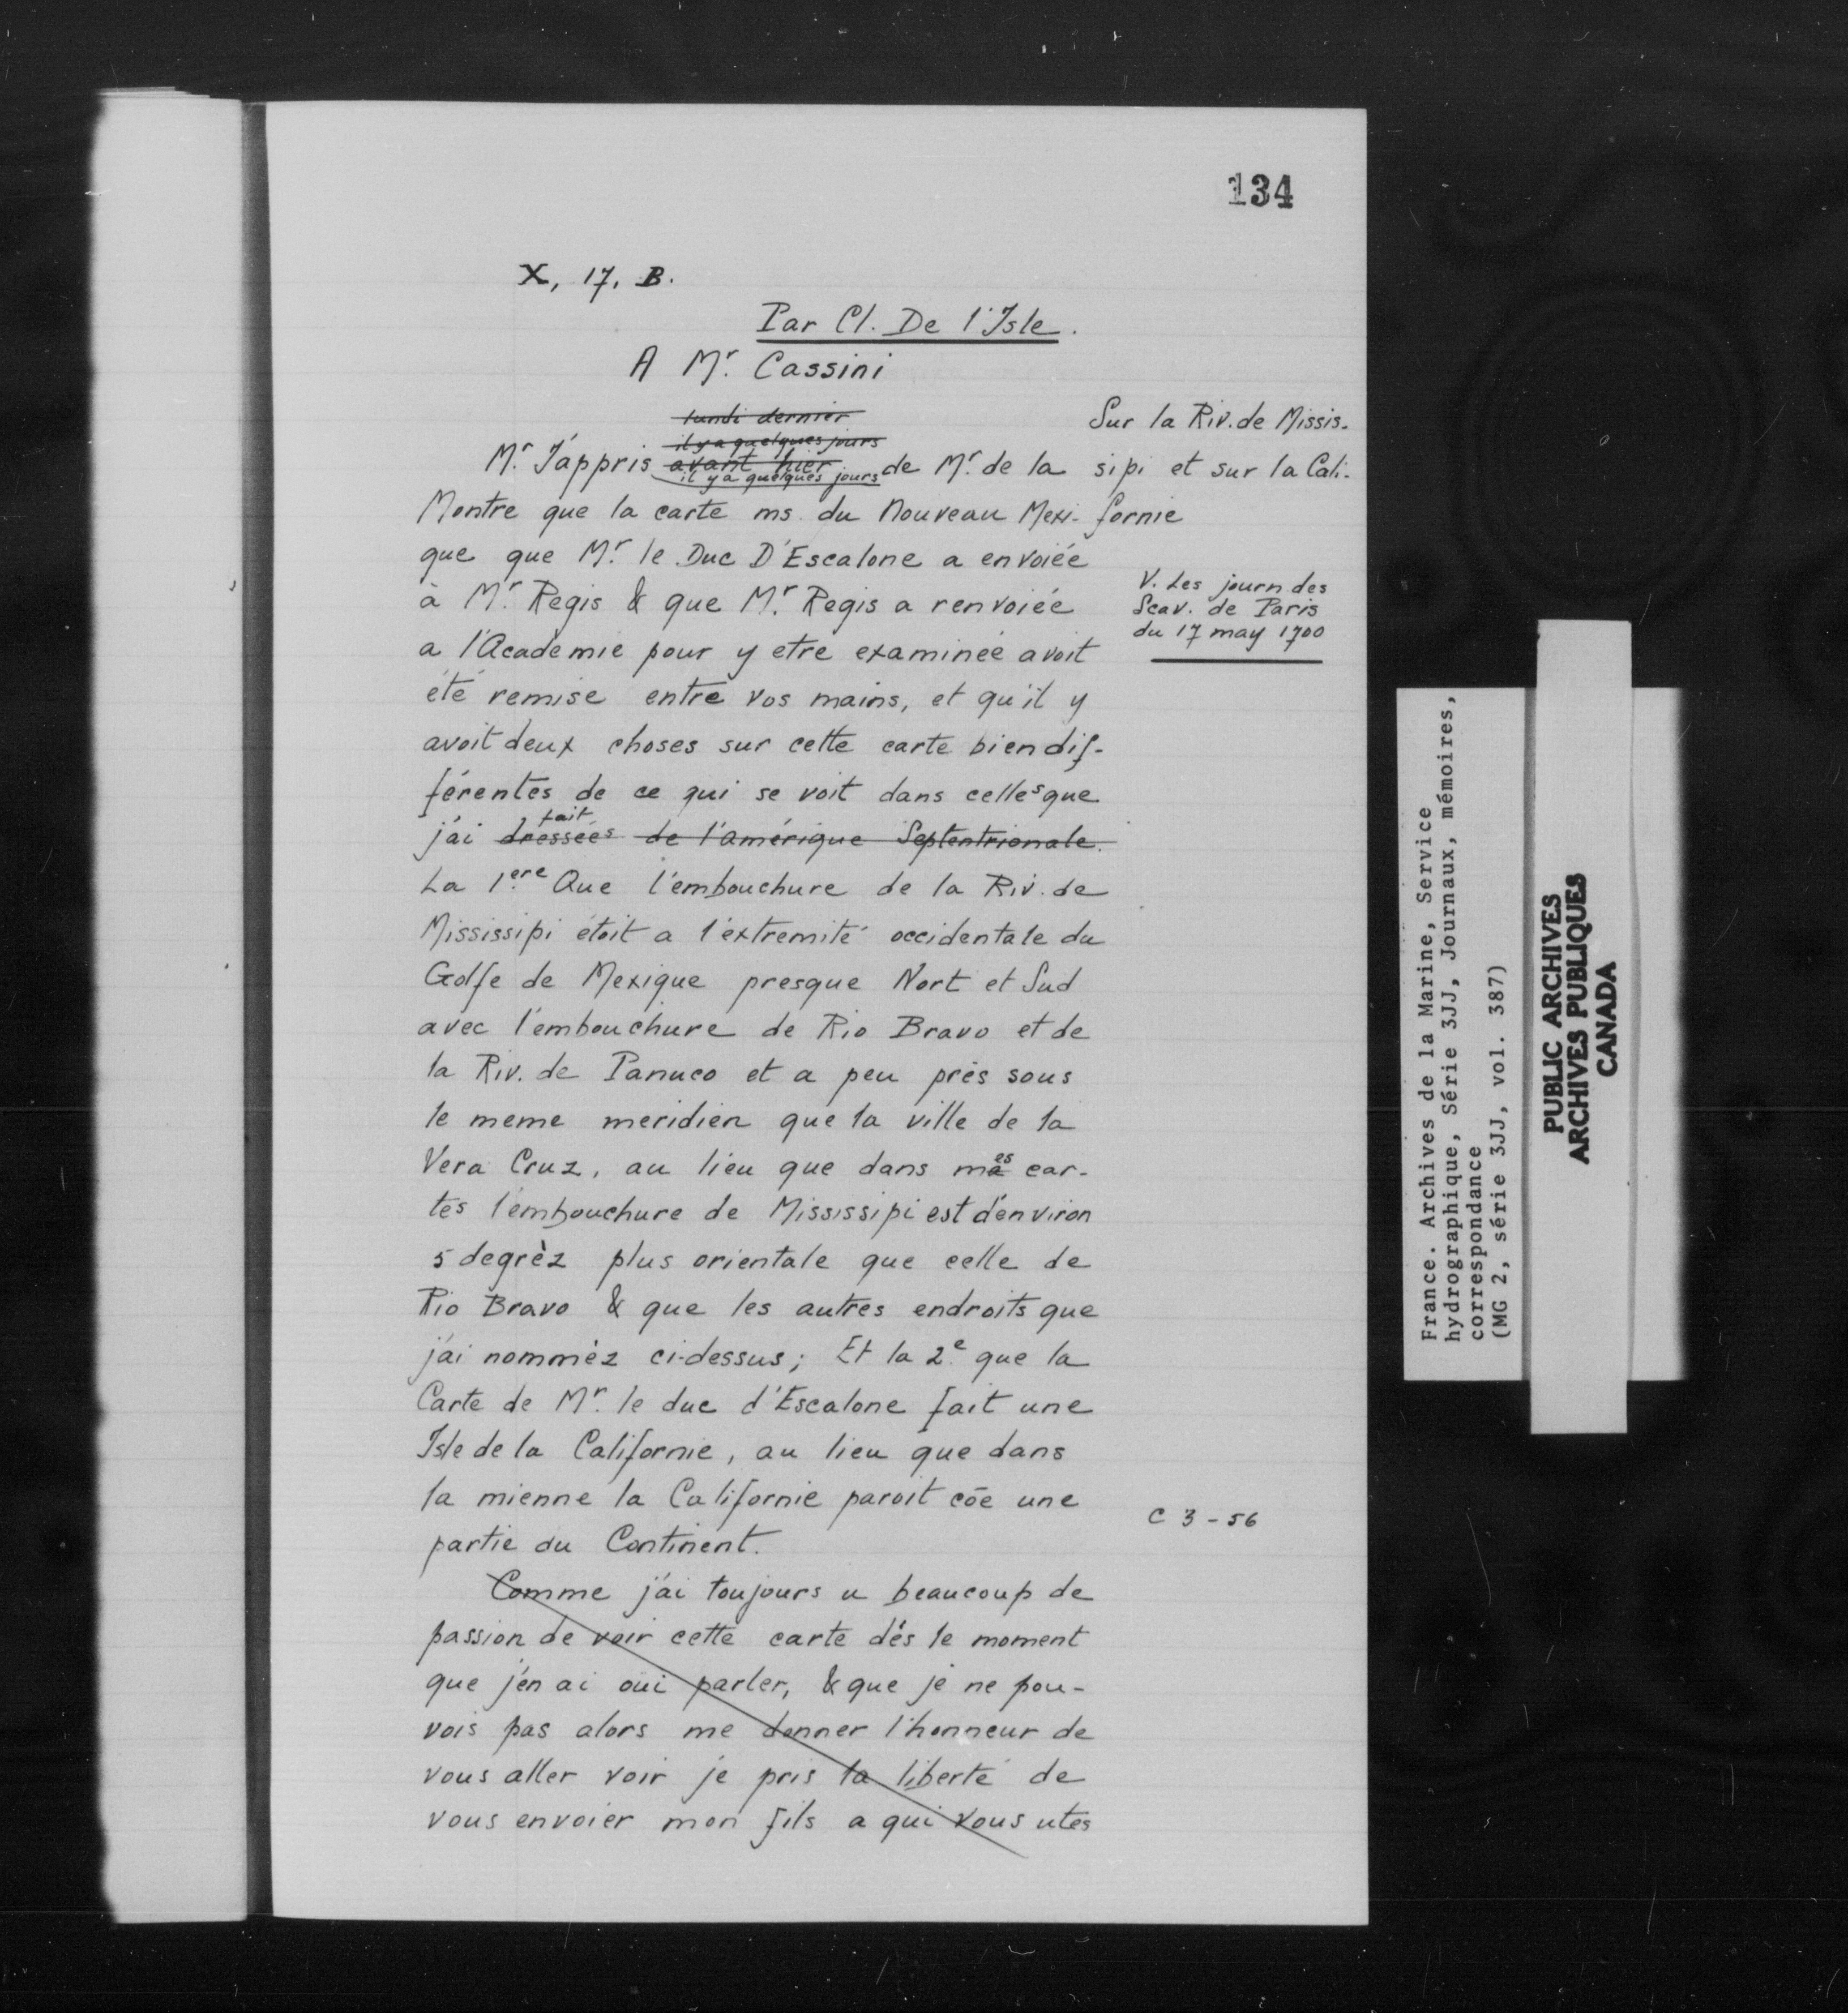 134
X, 17, B.
Par Cl. De l'Isle.
A Mr. Cassini
Sur la Riv. de Missis-
sipi et sur la Cali-
fornie
V. Les journ des
Scav. de Paris
du 17 may 1700
lundi dernier
il y a quelques jours
Mr. J'appris avant hier de Mr. de la
il y a quelques jours
Montre que la carte ms. du Nouveau Mexi-
que que Mr. le Duc D'Escalone a envoiée
à Mr. Regis & que Mr. Regis a renvoiée
a l'Academie pour y etre examinée avoit
été remise entre vos mains, et qu'il y
avoit deux choses sur cette carte bien dif-
férentes de ce qui se voit dans celles que
fait
j'ai dressées de l'amérique Septentrionale.
La 1ere Que l'embouchure de la Riv. de
Mississipi étoit a l'extremité occidentale du
Golfe de Mexique presque Nort et Sud
avec l'embouchure de Rio Bravo et de
la Riv. de Panuco et a peu près sous
le meme meridien que la ville de la
Vera Cruz, au lieu que dans maes car-
tes l'embouchure de Mississipi est d'environ
5 degrèz plus orientale que celle de
Rio Bravo & que les autres endroits que
j'ai nommèz ci-dessus; Et la 2e que la
Carte de Mr. le duc d'Escalone fait une
Isle de la Californie, au lieu que dans
la mienne la Californie paroit cōe une
partie du Continent.
C 3 - 56
Comme j'ai toujours u beaucoup de
passion de voir cette carte dés le moment
que j'en ai oüi parler, & que je ne pou-
vois pas alors me donner l'honneur de
vous aller voir je pris la liberté de
vous envoier mon fils a qui vous utes
France. Archives de la Marine, Service
hydrographique, Série 3JJ, Journaux, mémoires,
correspondance
(MG 2, série 3JJ, vol. 387)
PUBLIC ARCHIVES
ARCHIVES PUBLIQUES
CANADA